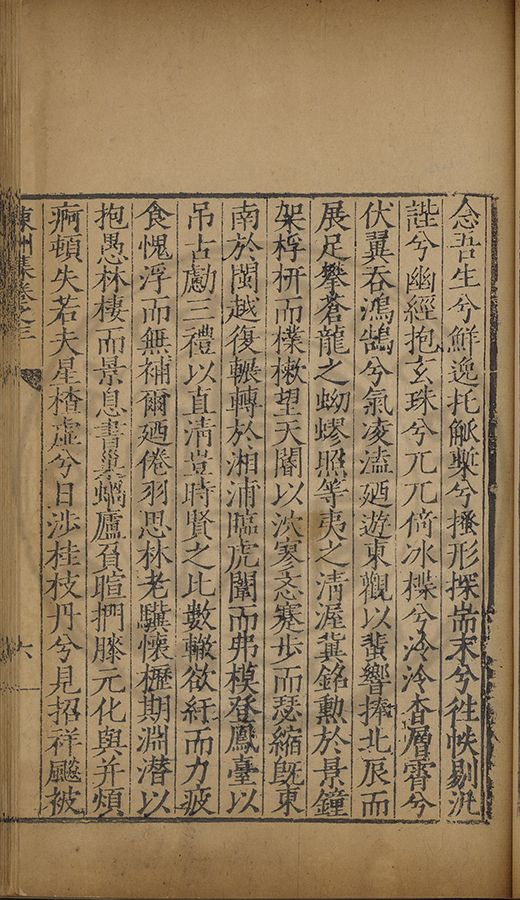 念吾生兮鮮逸托觚槧兮搔形探耑末兮往帙剔沉
詿兮幽經抱玄珠兮兀兀倚冰楪兮泠泠杳層霄兮
伏翼吞鴻鵠兮氣凌溘廼遊東觀以蜚響捧北辰而
展足攀蒼龍之蚴蟉照等夷之清渥冀銘勳於景鐘
架桴枅而樸樕望天閽以泬寥忞蹇步而瑟縮旣東
南於閩越復輾轉於湘浦瞌虎闈而弗模登鳳臺以
吊古勵三禮以直清豈時賢之比數轍欲紆而力疲
食愧浮而無補爾廼倦羽思林老驥懷櫪期淵潜以
抱愚林棲而景息書巢蝸廬負暄捫膝元化與并煩
痾頓失若夫星楂虛兮日渉桂枝丹兮見招祥飈被
東洲集卷之三
六